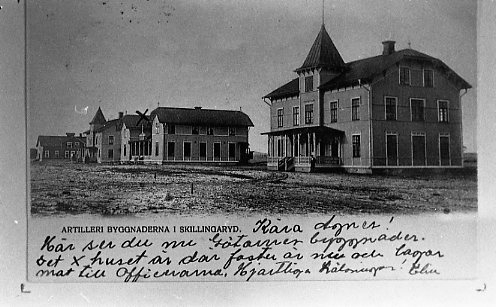 ARTILLERI BYGGNADERNA I SKILLINGARYD. Kära Agnes!
Här ser du nu Götarnes byggnader.
Det X huset är där faster är nu och lagar
mat till Officerarna, Hjärtliga Hälsningar! Elin